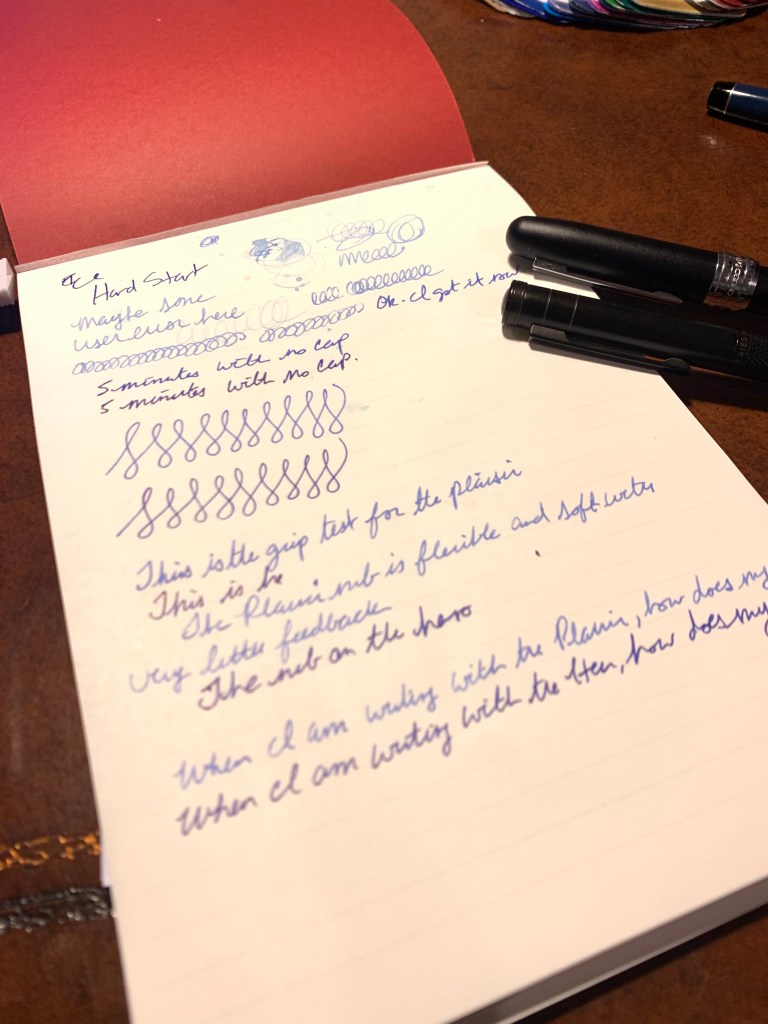 Hard Start
Maybe some
user error here
Ok. I got it now
5 minutes with no cap
5 minutes with no cap.
This is the grip test for the plaisir
This is he
The Plaisir nib is flexible and soft with
very little feedback
The nib on the hero
When I am writing with the Plaisir, how does my
When I am writing with the Hero, how does my